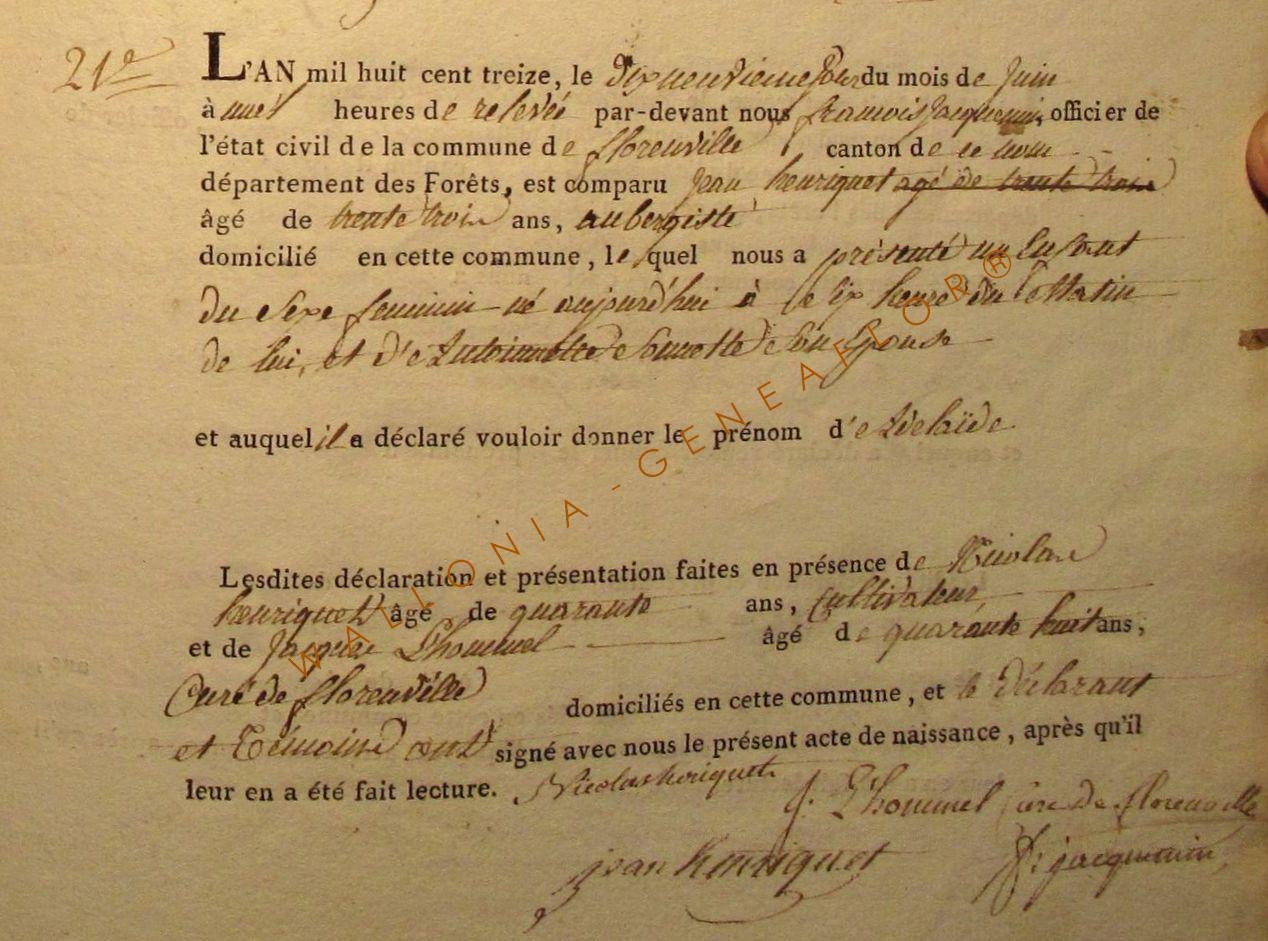 21e
L'AN mil huit cent treize, le dix neuvieme Jour du mois de Juin
à une heures de relevée par-devant nous francois Jacquemin, officier de
l'état civil de la commune de florenville canton de ce nom
département des Forêts, est comparu Jean henriquet agé de trente trois
âgé de trente trois ans, aubergiste
domicilié en cette commune, le quel nous a présenté un Enfant
du Sexe feminin né aujourd'hui à Six heure du Matin
de lui, et d'Antoinette Son Epouse
et auquel il a déclaré vouloir donner le prénom d'Adelaïde
Lesdites déclaration et présentation faites en présence de Nicolas
henriquet âgé de quarante ans, Cultivateur,
et de Jacques Lhommel âgé de quarante huit ans,
Curé de florenville domiciliés en cette commune, et le déclarant
et Témoins ont signé avec nous le présent acte de naissance, après qu'il
leur en a été fait lecture. Nicolas heriquet
J. Lhommel Curé de florenville
jean henriquet fr: jacquemin
WALLONIA-GENEAFLOR®